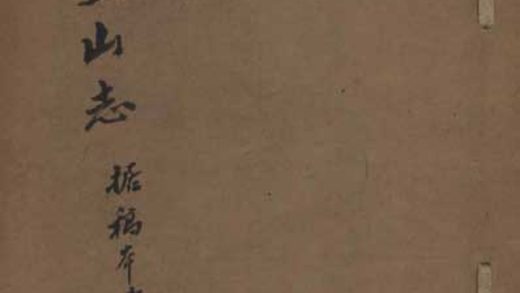 山志
据稿本